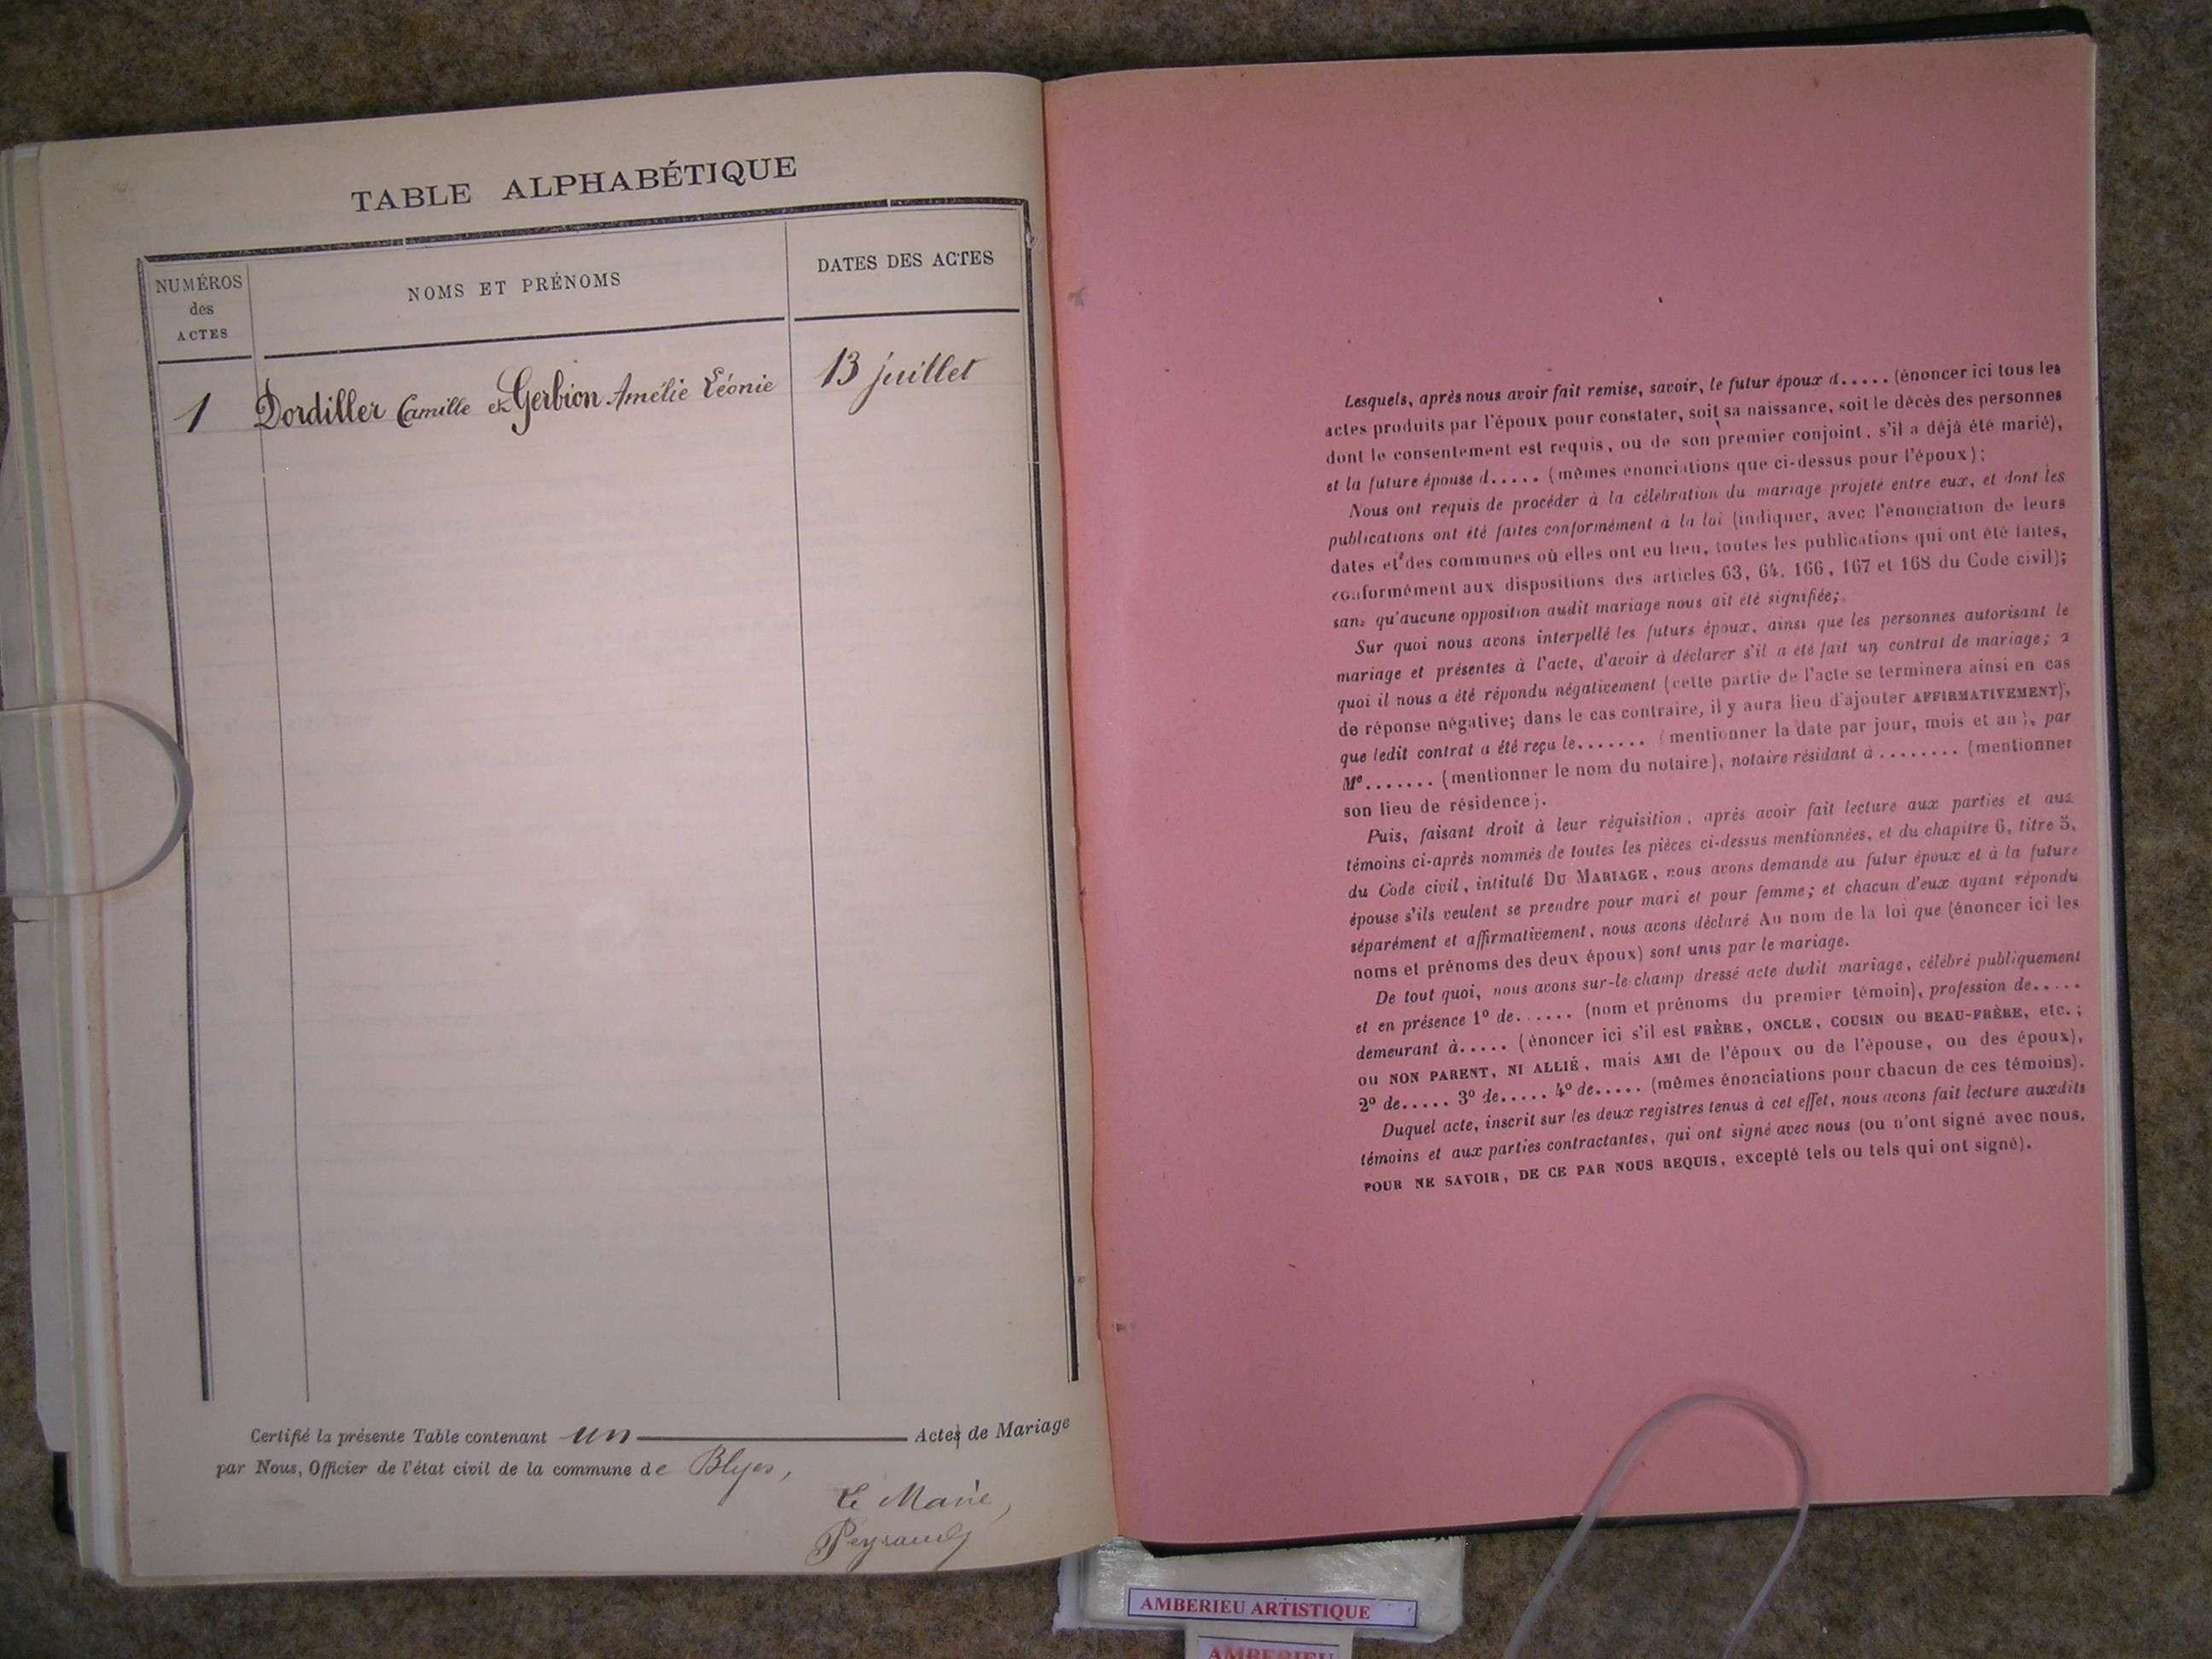 TABLE ALPHABÉTIQUE
NUMÉROS
des
ACTES
NOMS ET PRÉNOMS
DATES DES ACTES
1 Dordiller Camille et Gerbion Amélie Léonie 13 juillet
Certifié la présente Table contenant un Actes de Mariage
par Nous, Officier de l'état civil de la commune de Blyes,
Le Maire,
Lesquels, après nous avoir fait remise, savoir, le futur époux d..... (énoncer ici tous les
actes produits par l'époux pour constater, soit sa naissance, soit le décès des personnes
dont le consentement est requis, ou de son premier conjoint, s'il a déjà été marié),
et la future épouse d..... (mêmes énonciations que ci-dessus pour l'époux);
Nous ont requis de procéder à la célébration du mariage projeté entre eux, et dont les
publications ont été faites conformément à la loi (indiquer, avec l'énonciation de leurs
dates et des communes où elles ont eu lieu, toutes les publications qui ont été faites,
conformément aux dispositions des articles 63, 64, 166, 167 et 168 du Code civil);
sans qu'aucune opposition audit mariage nous ait été signifiée;
Sur quoi nous avons interpellé les futurs époux, ainsi que les personnes autorisant le
mariage et présentes à l'acte, d'avoir à déclarer s'il a été fait un contrat de mariage; à
quoi il nous a été répondu négativement (cette partie de l'acte se terminera ainsi en cas
de réponse négative; dans le cas contraire, il y aura lieu d'ajouter AFFIRMATIVEMENT),
que ledit contrat a été reçu le....... (mentionner la date par jour, mois et an), par
Me....... (mentionner le nom du notaire), notaire résidant à ........ (mentionner
son lieu de résidence).
Puis, faisant droit à leur réquisition, après avoir fait lecture aux parties et aux
témoins ci-après nommés de toutes les pièces ci-dessus mentionnées, et du chapitre 6, titre 5,
du Code civil, intitulé DU MARIAGE, nous avons demandé au futur époux et à la future
épouse s'ils veulent se prendre pour mari et pour femme; et chacun d'eux ayant répondu
séparément et affirmativement, nous avons déclaré Au nom de la loi que (énoncer ici les
noms et prénoms des deux époux) sont unis par le mariage.
De tout quoi, nous avons sur-le-champ dressé acte dudit mariage, célébré publiquement
et en présence 1º de...... (nom et prénoms du premier témoin), profession de.....
demeurant à..... (énoncer ici s'il est FRÈRE, ONCLE, COUSIN ou BEAU-FRÈRE, etc.;
ou NON PARENT, NI ALLIÉ, mais AMI de l'époux ou de l'épouse, ou des époux),
2º de..... 3º de..... 4º de..... (mêmes énonciations pour chacun de ces témoins).
Duquel acte, inscrit sur les deux registres tenus à cet effet, nous avons fait lecture auxdits
témoins et aux parties contractantes, qui ont signé avec nous (ou n'ont signé avec nous,
POUR NE SAVOIR, DE CE PAR NOUS REQUIS, excepté tels ou tels qui ont signé).
AMBERIEU ARTISTIQUE
AMBERIEU